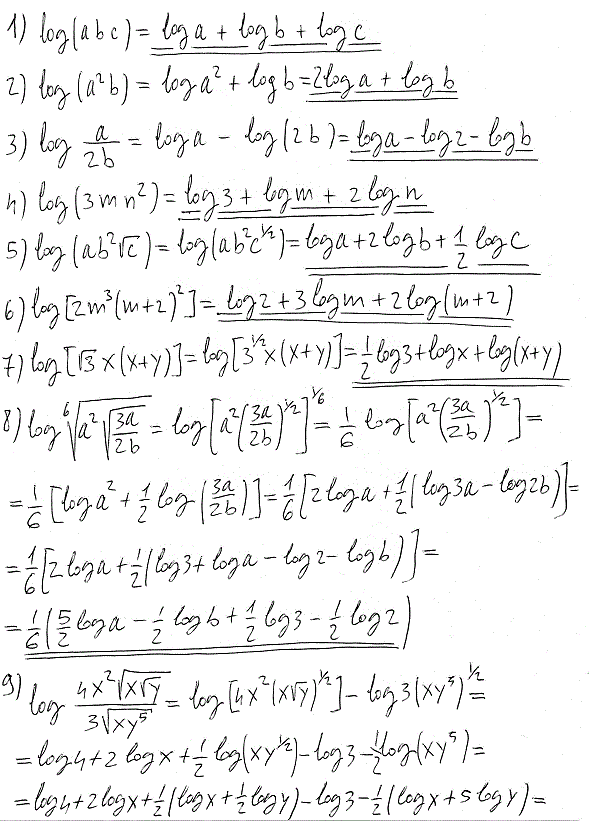 1) log(abc) = log a + log b + log c
2) log(a²b) = log a² + log b = 2log a + log b
3) log a/2b = log a - log(2b) = log a - log 2 - log b
4) log(3mn²) = log 3 + log m + 2 log n
5) log(ab²√c) = log(ab²c^1/2) = log a + 2 log b + 1/2 log c
6) log[2m³(m+2)²] = log 2 + 3 log m + 2 log(m+2)
7) log[√3 x(x+y)] = log[3^1/2 x(x+y)] = 1/2 log 3 + log x + log(x+y)
8) log ⁶√(a²√(3a/2b)) = log[a²(3a/2b)^1/2]^1/6 = 1/6 log[a²(3a/2b)^1/2] =
= 1/6 [log a² + 1/2 log(3a/2b)] = 1/6 [2 log a + 1/2 (log 3a - log 2b)] =
= 1/6 [2 log a + 1/2 (log 3 + log a - log 2 - log b)] =
= 1/6 (5/2 log a - 1/2 log b + 1/2 log 3 - 1/2 log 2)
9) log 4x²√(x√y)/3√(xy⁵) = log[4x²(x√y)^1/2] - log 3(xy⁵)^1/2 =
= log 4 + 2 log x + 1/2 log(xy^1/2) - log 3 - 1/2 log(xy⁵) =
= log 4 + 2 log x + 1/2 (log x + 1/2 log y) - log 3 - 1/2 (log x + 5 log y) =